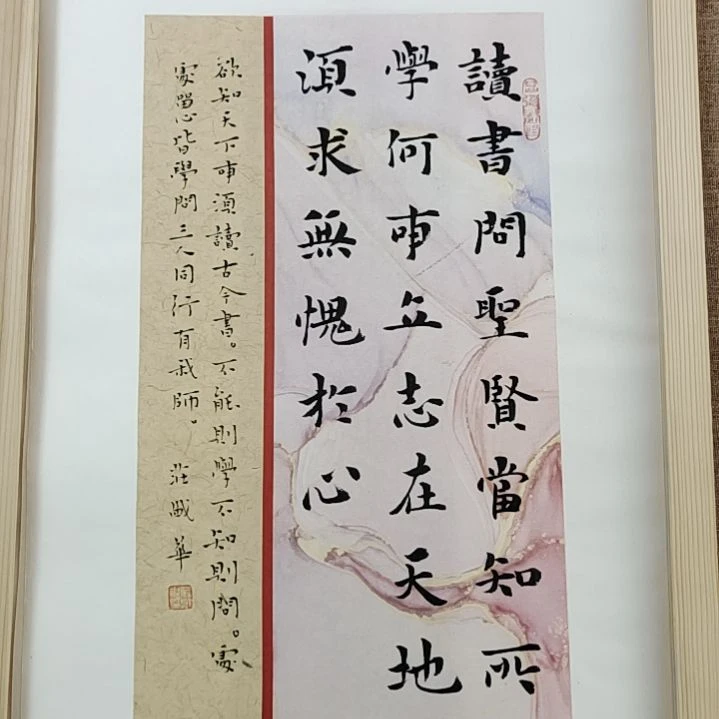 讀書問聖賢當知所
學何事立志在天地
須求無愧於心
欲知天下事須讀古今書。不能則學不知則問。處
處留心皆學問三人同行有我師。